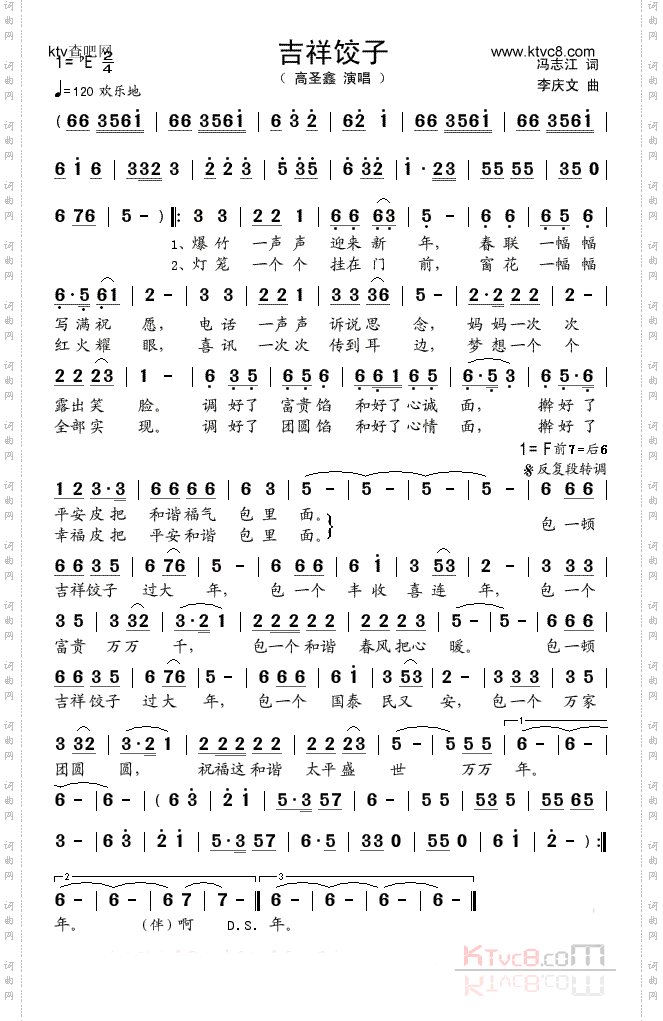 ktv查吧网
吉祥饺子
www.ktvc8.com
1= ♭E 2/4
( 高圣鑫 演唱 )
冯志江 词
♩=120 欢乐地
李庆文 曲
( 66 3561 | 66 3561 | 6 3 2 | 62 1 | 66 3561 | 66 3561 |
6 1 6 | 332 3 | 2 2 3 | 5 35 | 6 32 | 1· 23 | 55 55 | 35 0 |
6 76 | 5 - ) ‖: 3 3 | 2 2 1 | 6 6 63 | 5 - | 6 6 | 6 5 5 |
1、爆竹 一声声 迎来新 年, 春联 一幅幅
2、灯笼 一个个 挂在门 前, 窗花 一幅幅
6·5 61 | 2 - | 3 3 | 2 2 1 | 3 3 36 | 5 - | 2·2 2 2 | 5 2 |
写满祝 愿, 电话 一声声 诉说思 念, 妈妈一次 次
红火耀 眼, 喜讯 一次次 传到耳 边, 梦想一个 个
2 2 23 | 1 - | 6 35 | 6 6 5 | 6 61 65 | 6·5 3 | 65·6 |
露出笑 脸。 调好了 富贵馅 和好了心诚 面, 擀好了
全部实 现。 调好了 团圆馅 和好了心情 面, 擀好了
1= F前7=后6
𝄋反复段转调
1 2 3·3 | 6 6 6 6 | 6 3 | 5 - | 5 - | 5 - | 5 - | 6 6 6 |
平安皮把 和谐福气 包里 面。
包一顿
幸福皮把 平安和谐 包里 面。
6 6 3 5 | 6 76 | 5 - | 6 6 6 | 6 1 | 3 53 | 2 - | 3 3 3 |
吉祥饺子 过大 年, 包一个 丰收 喜连 年, 包一个
3 5 | 3 32 | 3·2 1 | 2 2 2 2 2 | 2 2 2 3 | 5 - | 5 - | 6 6 6 |
富贵 万万 千, 包一个和谐 春风把心 暖。 包一顿
6 6 3 5 | 6 76 | 5 - | 6 6 6 | 6 1 | 3 53 | 2 - | 3 3 3 | 3 5 |
吉祥饺子 过大 年, 包一个 国泰 民又 安, 包一个 万家
1
3 32 | 3·2 1 | 2 2 2 2 2 | 2 2 23 | 5 - | 5 5 5 | 6 - | 6 - |
团圆 圆, 祝福这和谐 太平盛 世 万万 年。
6 - | 6 - | ( 6 3 | 2 1 | 5·3 57 | 6·5 | 3 5 5 | 3 5 | 55 65 |
3 - | 6 3 | 2 1 | 5·3 57 | 6·5 | 33 0 | 55 0 | 6 1 | 2 - ) :‖
2
3
6 - | 6 - | 6 7 | 7 - ‖ 6 - | 6 - | 6 - | 6 - ‖
年。 (伴)啊 D.S. 年。
KTvc8.com